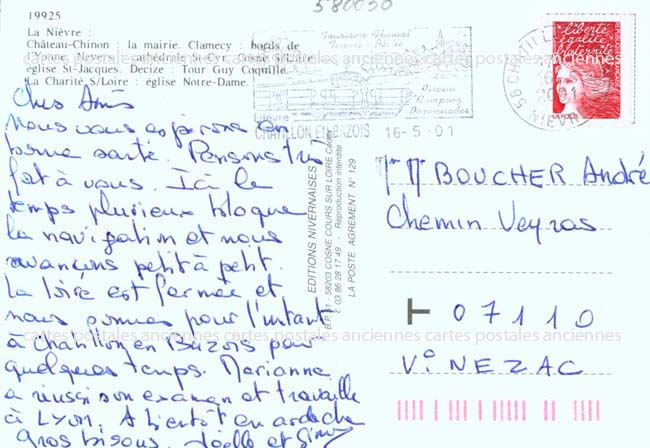 580030
19925
La Nièvre :
Château-Chinon : la mairie. Clamecy : bords de
l'Yonne. Nevers : cathédrale St-Cyr. Cosne S/Loire :
église St-Jacques. Decize : Tour Guy Coquille.
La Charité S/Loire : église Notre-Dame.
Chers Amis
nous vous espérons en
bonne santé. Pensons très
fort à vous. Ici le
temps pluvieux bloque
la navigation et nous
avançons petit à petit.
La loire est fermée et
nous sommes pour l'instant
à Chatillon en Bazois pour
quelques temps. Marianne
a réussi son examen et travaille
à Lyon. A bientôt en ardèche
gros bisous. Joëlle et
Tourisme Fluvial
Pêche
Piscine
Camping
Promenades
Nièvre
CHATILLON EN BAZOIS 16-5-01
58 CHATILL
2001
NIEVRE
liberté
égalité
fraternité
LA POSTE
EDITIONS NIVERNAISES
58203 COSNE COURS SUR LOIRE Cedex
03 86 28 17 49 - Reproduction interdite
LA POSTE AGREMENT N° 129
Mr Mme BOUCHER André
Chemin Veyras
07110
VINEZAC
cartes postales anciennes cartes postales anciennes cartes postales anciennes
cartes postales anciennes cartes postales anciennes cartes postales anciennes